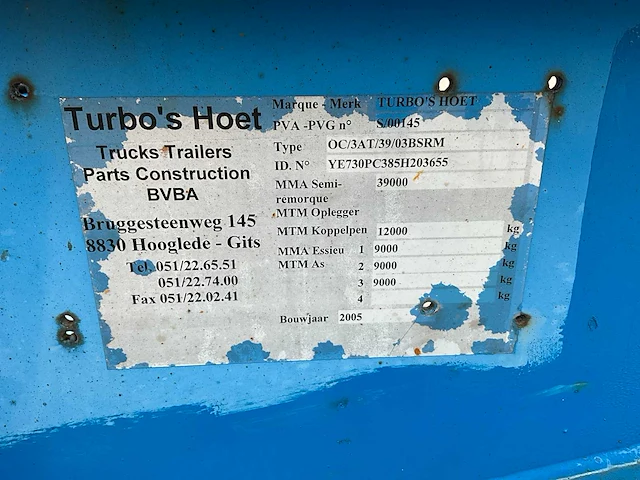 Turbo's Hoet
Trucks Trailers
Parts Construction
BVBA
Bruggesteenweg 145
8830 Hooglede - Gits
Tel. 051/22.65.51
051/22.74.00
Fax 051/22.02.41
Marque - Merk TURBO'S HOET
PVA -PVG n° S/00145
Type OC/3AT/39/03BSRM
ID. N° YE730PC385H203655
MMA Semi- 39000
remorque
MTM Oplegger
MTM Koppelpen 12000 kg
MMA Essieu 1 9000 kg
MTM As 2 9000 kg
3 9000 kg
4 kg
Bouwjaar 2005